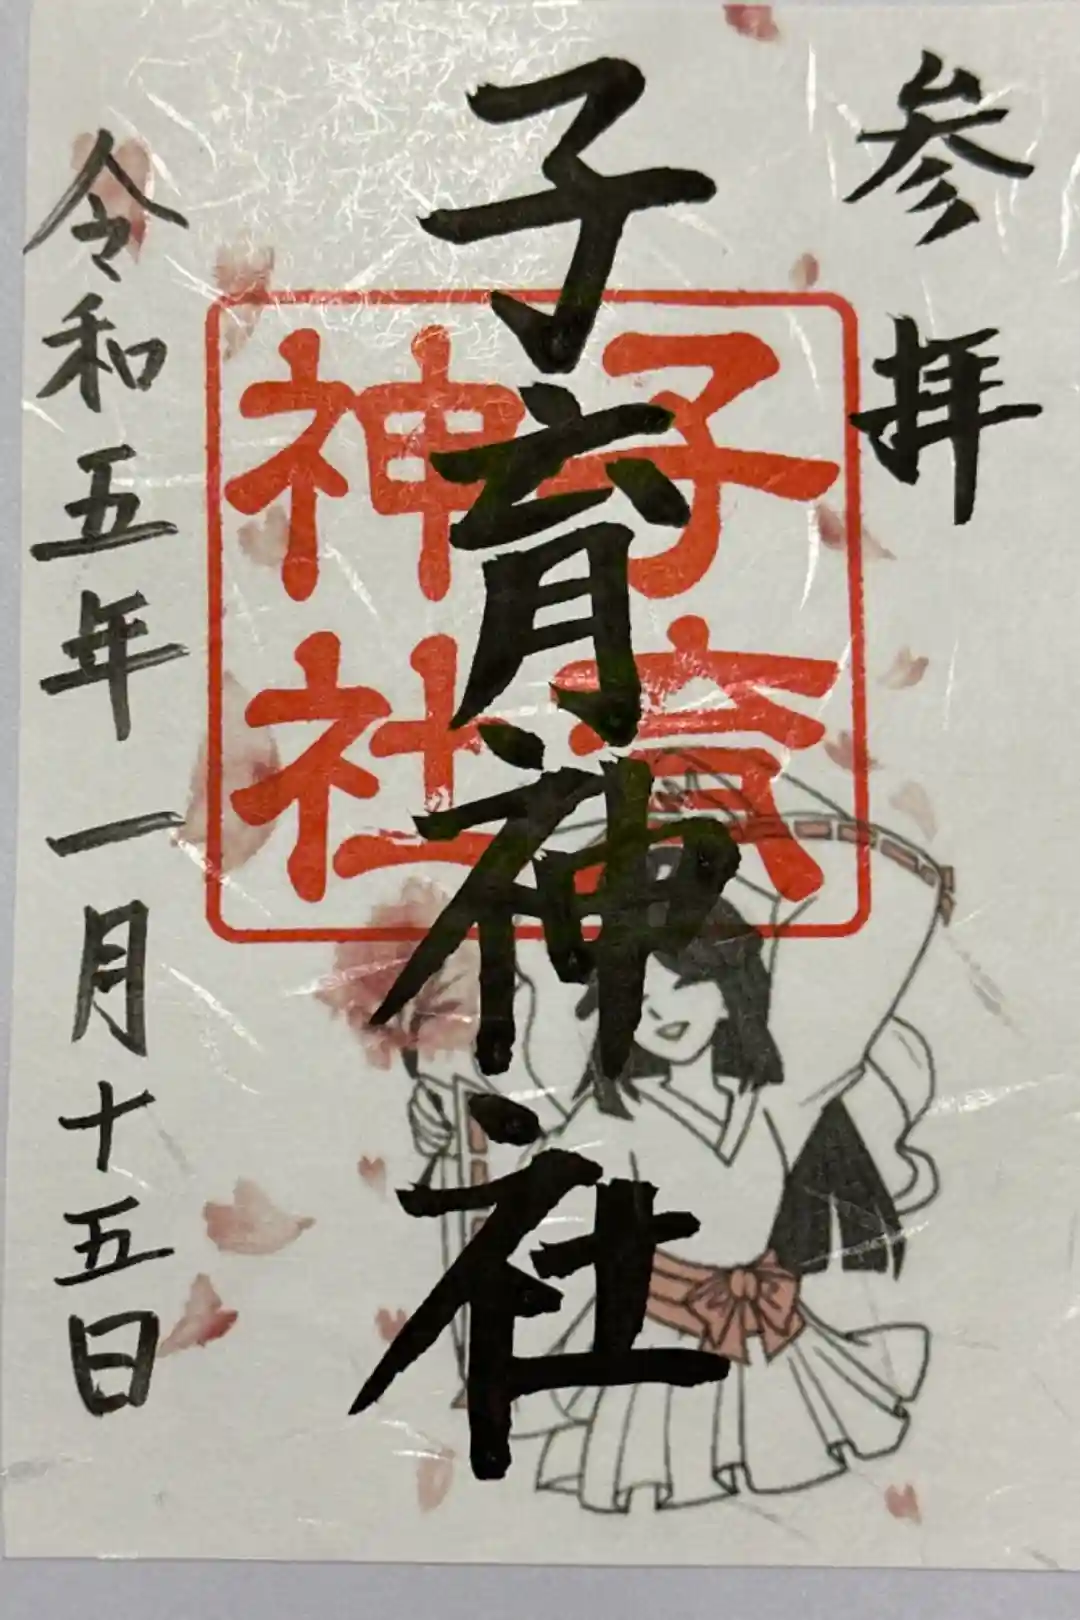 参拝
子育神社
子育
神社
令和五年一月十五日